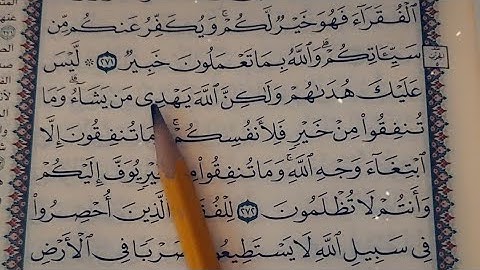 ٱلْفُقَرَآءَ فَهُوَ خَيْرٌ لَّكُمْ ۚ وَيُكَفِّرُ عَنكُم مِّن
سَيِّـَٔاتِكُمْ ۗ وَٱللَّهُ بِمَا تَعْمَلُونَ خَبِيرٌ ٢٧١ ۞ لَّيْسَ
عَلَيْكَ هُدَىٰهُمْ وَلَـٰكِنَّ ٱللَّهَ يَهْدِى مَن يَشَآءُ ۗ وَمَا
تُنفِقُوا۟ مِنْ خَيْرٍ فَلِأَنفُسِكُمْ ۚ تُنفِقُونَ إِلَّا
ٱبْتِغَآءَ وَجْهِ ٱللَّهِ ۚ وَمَا تُنفِقُوا۟ خَيْرٍ يُوَفَّ إِلَيْكُمْ
وَأَنتُمْ لَا تُظْلَمُونَ ٢٧٢ ٱلَّذِينَ أُحْصِرُوا۟
فِى سَبِيلِ ٱللَّهِ لَا يَسْتَطِيعُونَ ضَرْبًا فِى ٱلْأَرْضِ